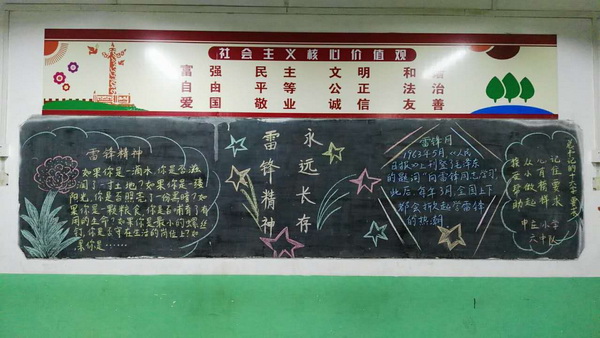 社会主义核心价值观
富强 民主 文明 和
自由 平等 公正 法治
爱国 敬业 诚信 友善
雷锋精神
如果你是一滴水,你是否滋
润了一寸土地?如果你是一缕
阳光,你是否照亮了一份黑暗?如
果你是一颗粮食,你是否哺育了有
用的生命?如果你是最小的螺丝
钉,你是否守在生活的岗位上?如
果你是……
永远长存
雷锋精神
雷锋月
1963年3月5日人民
日报上刊登毛泽东
的题词“向雷锋同志学习”
此后,每年3月,全国上下
都会掀起学雷锋
的热潮
记住要求
心有榜样
从小做起
接受帮助
小学
六中队